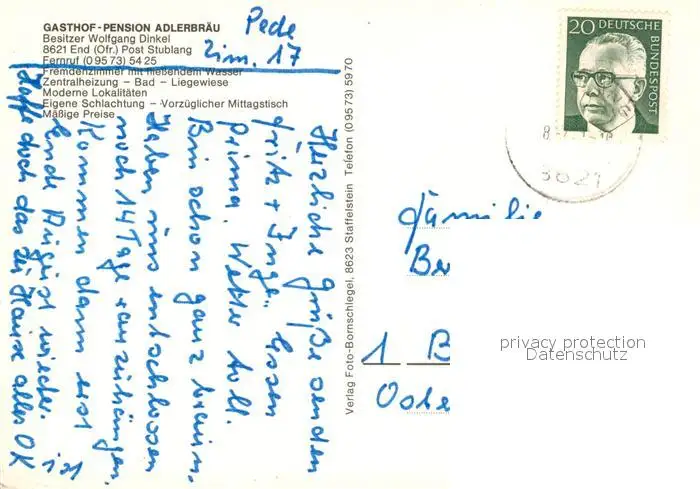 GASTHOF-PENSION ADLERBRÄU
Besitzer Wolfgang Dinkel
8621 End (Ofr.) Post Stublang
Fernruf (0 95 73) 54 25
Fremdenzimmer mit fließendem Wasser
Zentralheizung – Bad – Liegewiese
Moderne Lokalitäten
Eigene Schlachtung – Vorzüglicher Mittagstisch
Mäßige Preise
Zim. 17
Herzliche Grüße senden
Fritz + Inge. Essen
prima. Wetter toll.
Bin schon ganz braun.
Haben uns entschlossen
noch 14 Tage anzuhängen.
Kommen dann erst
Ende August wieder.
Hoffe doch das zu Hause alles OK
ist
Verlag Foto-Bornschlegel, 8623 Staffelstein Telefon (0 95 73) 59 70
20 DEUTSCHE
BUNDESPOST
Familie
Be
1 B
Oste
privacy protection
Datenschutz